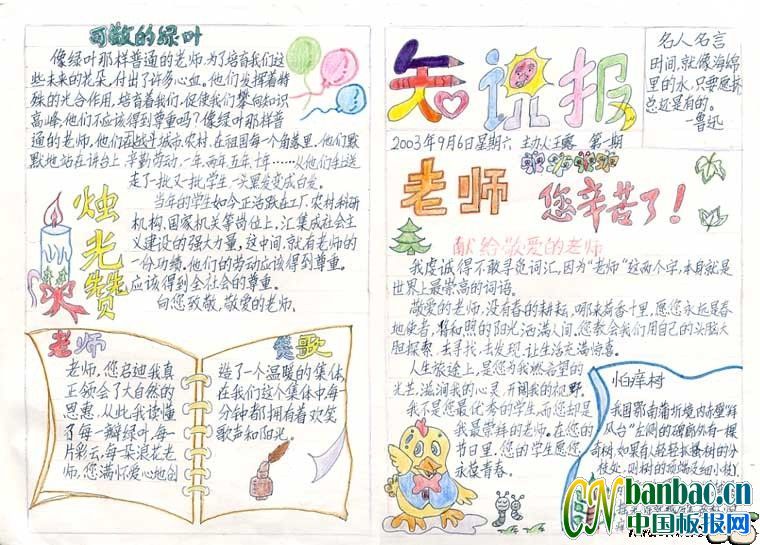 可敬的绿叶
像绿叶那样普通的老师,为了培育我们这
些未来的花朵,付出了许多心血。他们发挥着特
殊的光合作用,培育着我们,促使我们攀向知识
高峰,他们不应该得到尊重吗?像绿叶那样普
通的老师,他们在城市、农村,在祖国每一个角落里,他们默
默地站在讲台上,辛勤劳动,一年两年五年十年……从他们手上送
走了一批又一批学生,一头黑发变成白发。
当年的学生如今正活跃在工厂、农村、科研
机构、国家机关等岗位上,汇集成社会主
义建设的强大力量,这中间,就有老师的
一份功绩。他们的劳动应该得到尊重。
应该得到全社会的尊重。
向您致敬,敬爱的老师。
烛光赞
老师
老师,您启迪我真
正领会了大自然的
恩惠,从此我读懂
了每一瓣绿叶,每一
片彩云,每朵浪花老
师,您满怀爱心地创
赞歌
造了一个温暖的集体,
在我们这个集体中每一
分钟都拥有着欢笑
歌声和阳光。
知识报
2003年9月6日星期六 主办人:王 第一期
名人名言
时间,就像海绵
里的水,只要愿挤,
总还是有的。
——鲁迅
老师 您辛苦了!
献给敬爱的老师
我虔诚得不敢寻觅词汇,因为“老师”这两个字,本身就是
世界上最崇高的词语。
敬爱的老师,没有春的耕耘,哪来荷香十里,愿您永远是春
地使者,将和照的阳光洒满人间。您教会我们用自己的头脑大
胆探索,去寻找,去发现,让生活充满惊喜。
人生旅途上,是您为我燃希望的
光芒,滋润我的心灵,开阔我的视野。
我不是您最优秀的学生,而您却是
我最崇拜的老师。在您的
节日里,您的学生愿您
永葆青春。
怕痒树
我国鄂南蒲圻境内赤壁“拜
风台”左侧的碑廊外有一棵
奇树,如果有人轻轻抓挠树的分
枝处,则树的顶端及细小枝
banbao.cn
CN 中国板报网